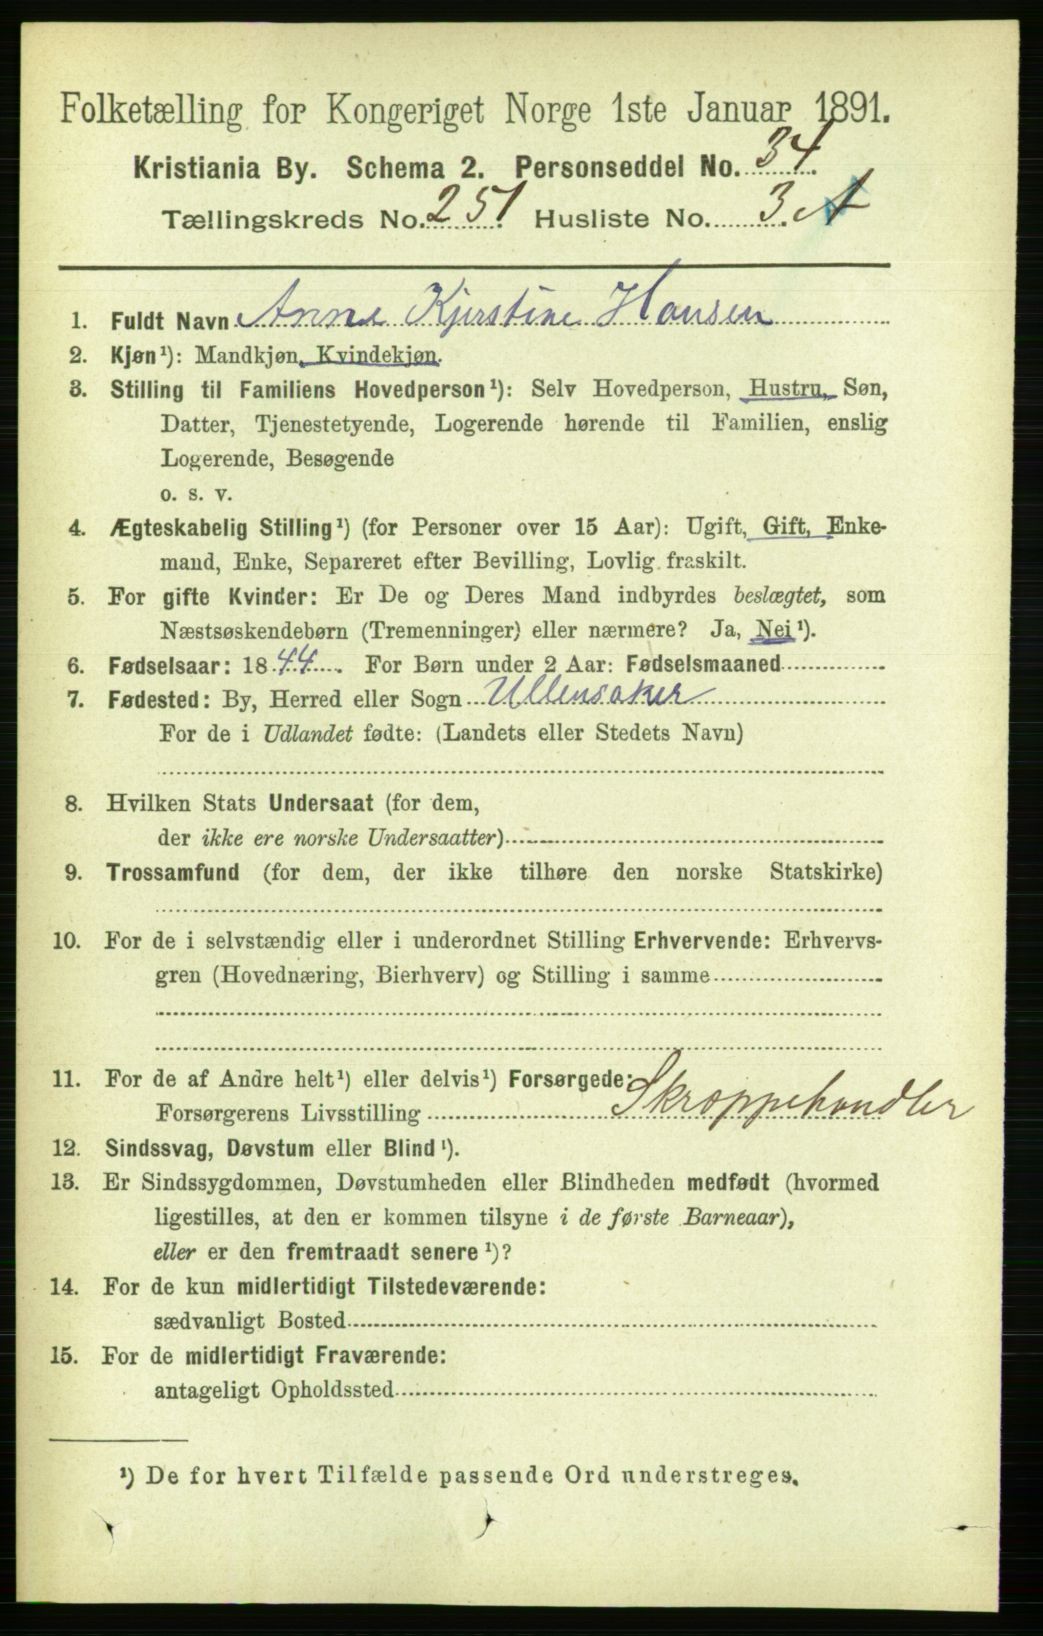 Folketælling for Kongeriget Norge 1ste Januar 1891.
Kristiania By. Schema 2. Personseddel No. 34.
Tællingskreds No. 251. Husliste No. 3. A
1. Fuldt Navn Anne Kjerstine Hansen
2. Kjøn¹): Mandkjøn, Kvindekjøn.
3. Stilling til Familiens Hovedperson¹): Selv Hovedperson, Hustru, Søn,
Datter, Tjenestetyende, Logerende hørende til Familien, enslig
Logerende, Besøgende
o. s. v.
4. Ægteskabelig Stilling¹) (for Personer over 15 Aar): Ugift, Gift, Enke-
mand, Enke, Separeret efter Bevilling, Lovlig fraskilt.
5. For gifte Kvinder: Er De og Deres Mand indbyrdes beslægtet, som
Næstsøskendebørn (Tremenninger) eller nærmere? Ja, Nei¹).
6. Fødselsaar: 1844. For Børn under 2 Aar: Fødselsmaaned
7. Fødested: By, Herred eller Sogn Ullensaker
For de i Udlandet fødte: (Landets eller Stedets Navn)
8. Hvilken Stats Undersaat (for dem,
der ikke ere norske Undersaatter)
9. Trossamfund (for dem, der ikke tilhøre den norske Statskirke)
10. For de i selvstændig eller i underordnet Stilling Erhvervende: Erhvervs-
gren (Hovednæring, Bierhverv) og Stilling i samme
11. For de af Andre helt¹) eller delvis¹) Forsørgede:
Forsørgerens Livsstilling Skrappehandler
12. Sindssvag, Døvstum eller Blind¹).
13. Er Sindssygdommen, Døvstumheden eller Blindheden medfødt (hvormed
ligestilles, at den er kommen tilsyne i de første Barneaar),
eller er den fremtraadt senere¹)?
14. For de kun midlertidigt Tilstedeværende:
sædvanligt Bosted
15. For de midlertidigt Fraværende:
antageligt Opholdssted
¹) De for hvert Tilfælde passende Ord understreges.